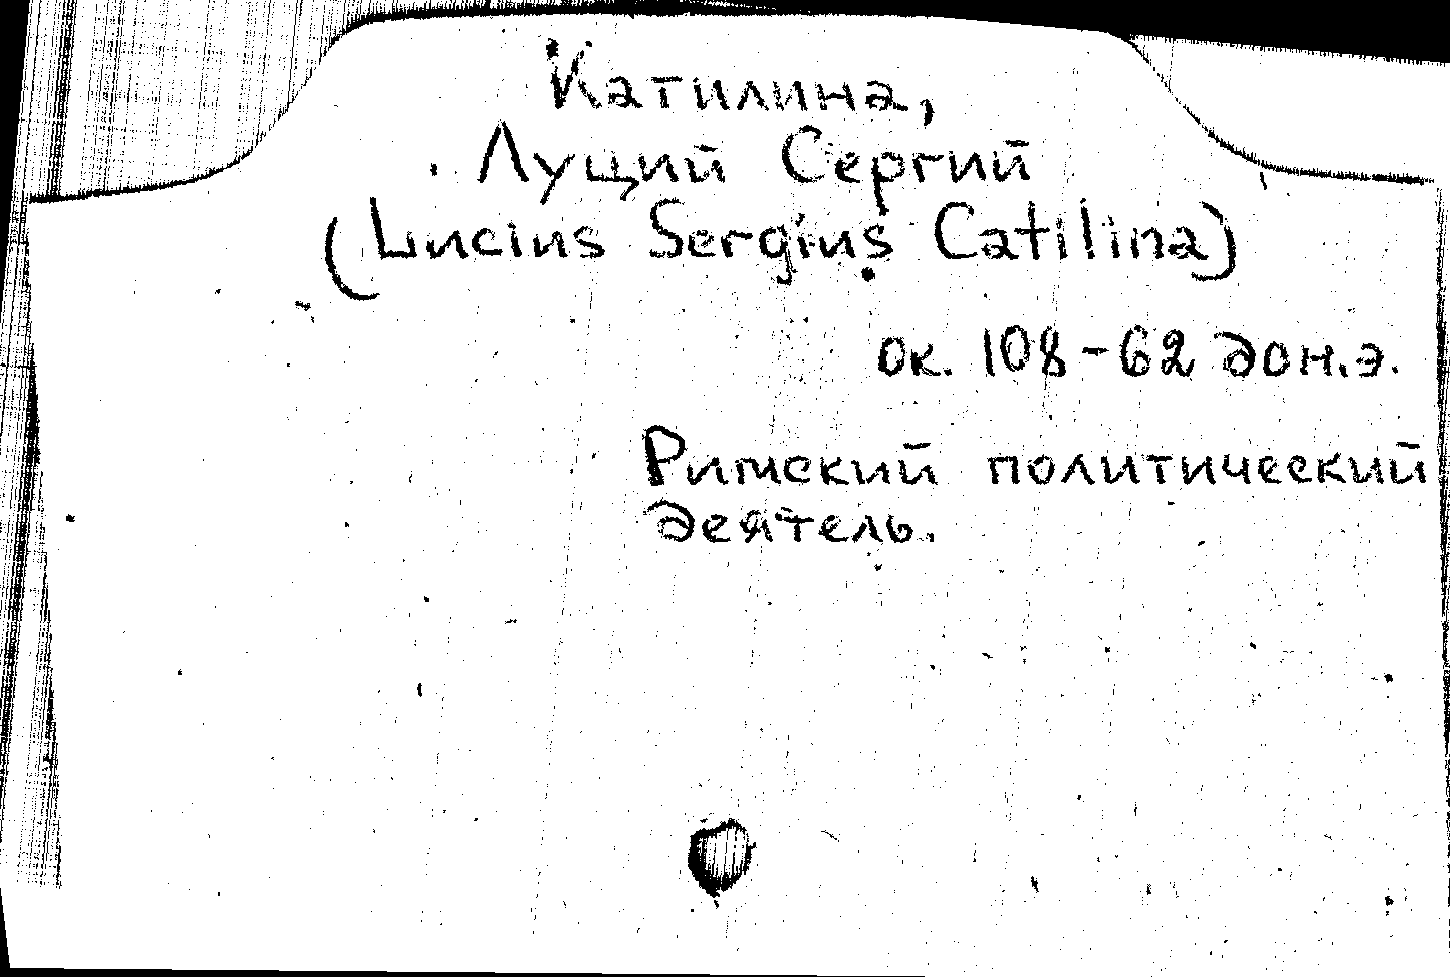 Катилина,
Луций Сергий
(Lucius Sergius Catilina)
ок. 108-62 до н.э.
Римский политический
деятель.